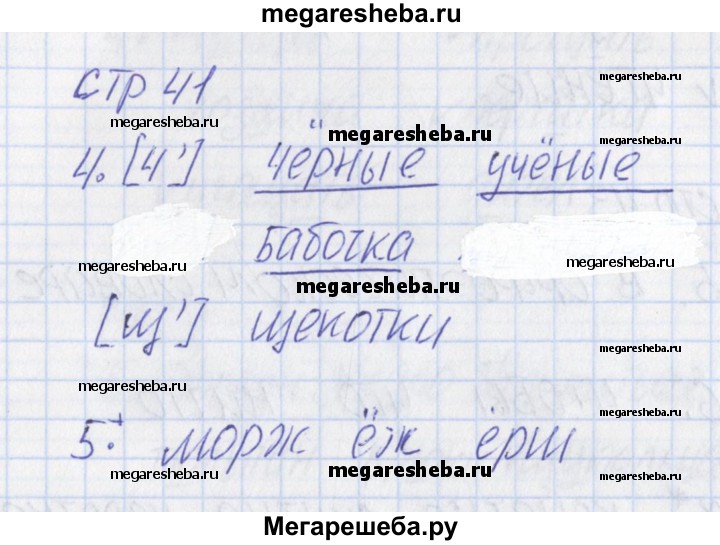 megaresheba.ru
стр 41
megaresheba.ru
megaresheba.ru
megaresheba.ru
4. [ч'] чёрные учёные
megaresheba.ru
бабочка
megaresheba.ru
megaresheba.ru
megaresheba.ru
[щ'] щекотки
megaresheba.ru
megaresheba.ru
5. морж ёж ёрш
megaresheba.ru
megaresheba.ru
megaresheba.ru
Мегарешеба.ру